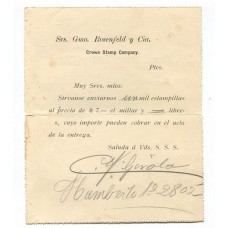 Srs. Gmo. Rosenfeld y Cía.
Crown Stamp Company.
Ptes.
Muy Sres. mios:
Sírvanse enviarnos mil estampillas
al precio de $ 7.— el millar y — libre-
s, cuyo importe pueden cobrar en el acto
de la entrega.
Saluda á Uds. S. S. S.
Humberto 1º 2802